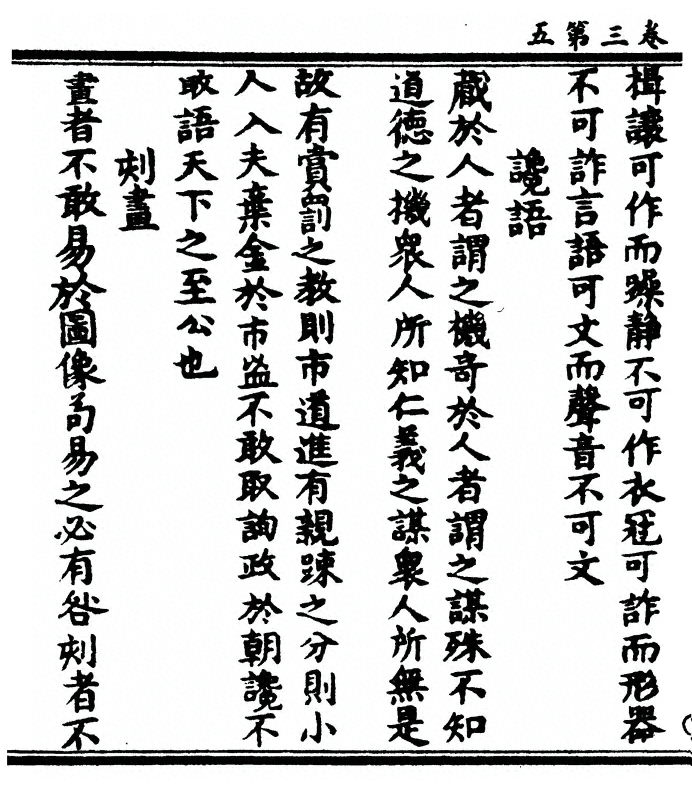 卷三第五
揖讓可作而躁靜不可作衣冠可詐而形器
不可詐言語可文而聲音不可文
讒語
藏於人者謂之機奇於人者謂之謀殊不知
道德之機眾人所知仁義之謀眾人所無是
故有賞罰之教則市道進有親踈之分則小
人入夫棄金於市盜不敢取詢政於朝讒不
敢語天下之至公也
刻畫
畫者不敢易於圖像苟易之必有咎刻者不